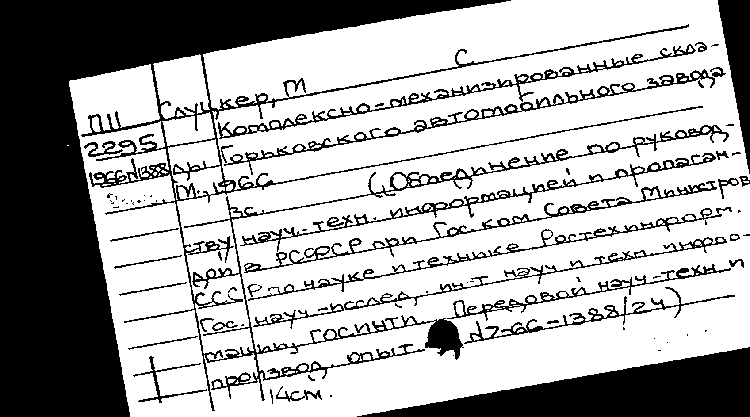 П11 Слуцкер, М С
2295 Комплексно-механизированные скла-
1966г/1388 ды Горьковского автомобильного завода
М., 1966
3с. (Объединение по руковод-
ству науч.-техн. информацией и пропаган-
дой в РСФСР при Гос. ком. Совета Министров
СССР по науке и технике Ростехинформ.
Гос. науч.-исслед. ин-т науч и техн. инфор-
мации, ГОСИНТИ. Передовой науч.-техн и
производ. опыт. №7-66-1388/24)
14см.